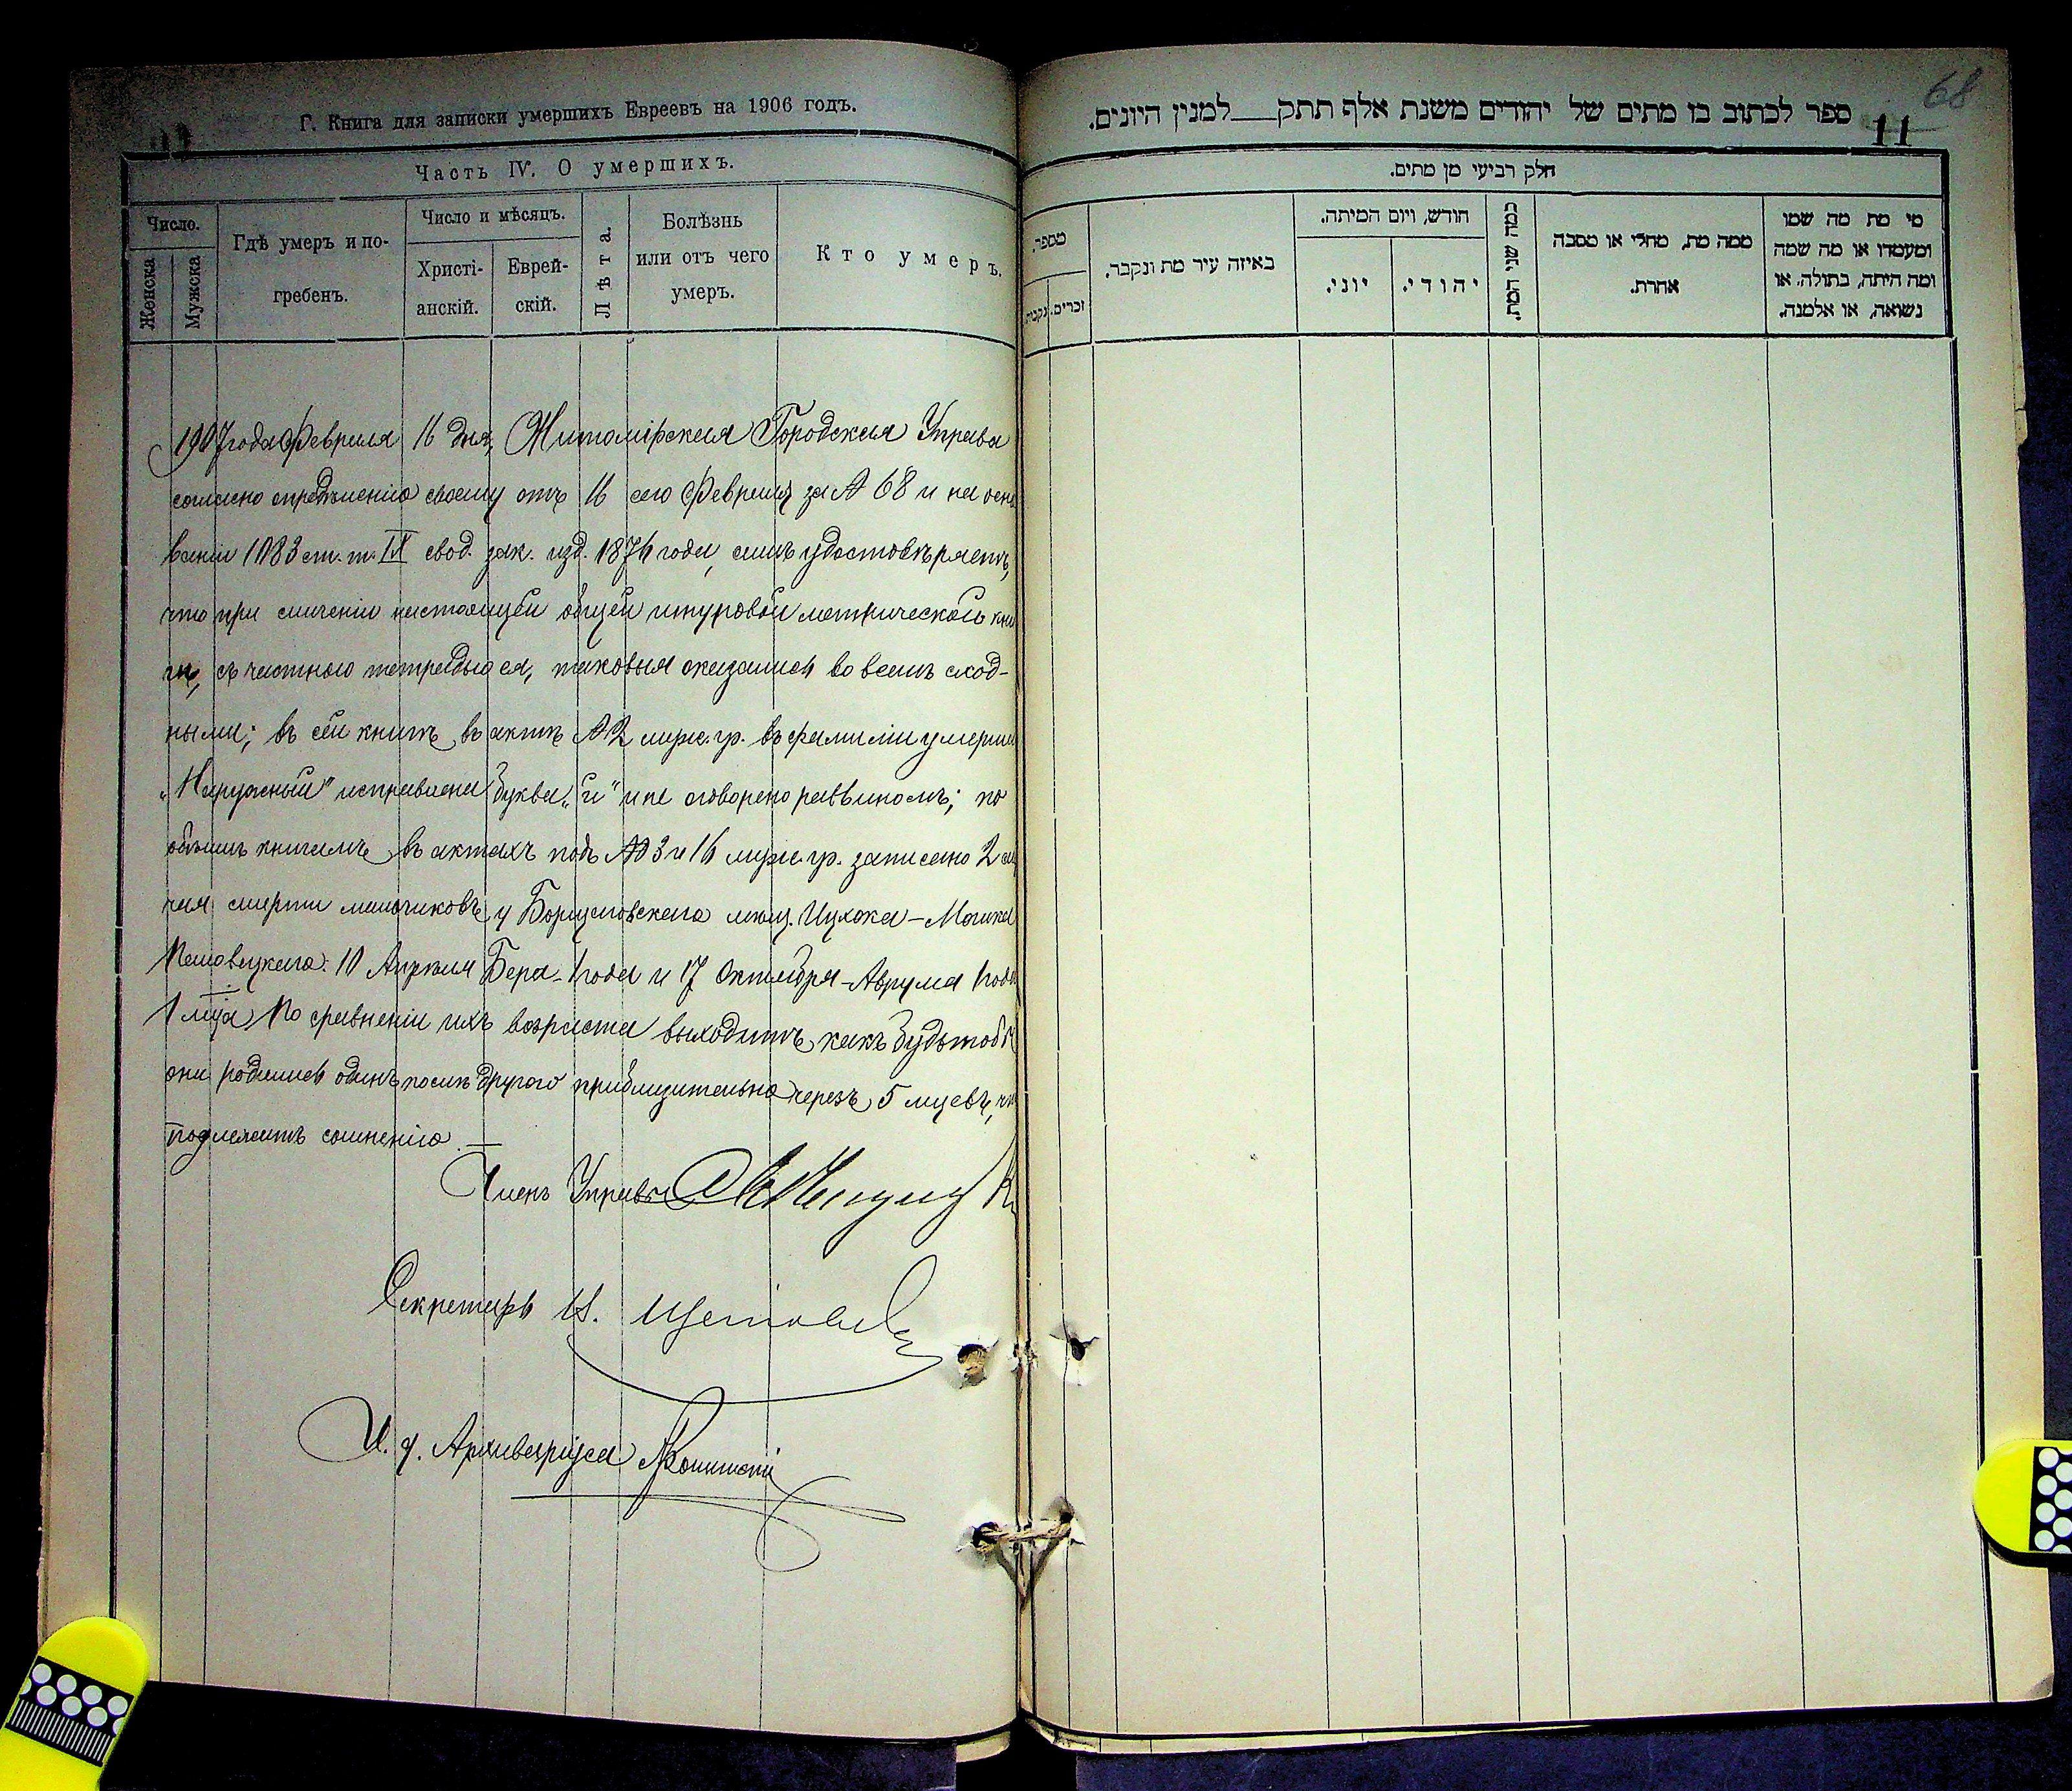 Г. Книга для записки умершихъ Евреевъ на 1906 годъ.
Часть IV. О умершихъ.
Число.
Женска
Мужска
Гдѣ умеръ и по-
гребенъ.
Число и мѣсяцъ.
Христі-
анскій.
Еврей-
скій.
Лѣта.
Болѣзнь
или отъ чего
умеръ.
Кто умеръ.
1907 года Февраля 16 дня, Житомірская Городская Управа
согласно опредѣленію своему отъ 16 сего Февраля за № 68 и на осно
ваніи 1083 ст. т. IX свод. зак. изд. 1876 года, симъ удостовѣряетъ,
что при сличеніи настоящей общей шнуровой метрической кни
ги, съ частною тетрадью ея, таковыя оказались во всемъ сход-
ными; въ сей книгѣ въ актѣ № 2 муж. гр. въ фамиліи умерша
„Наружный" исправлена буква „й" и не оговорено раввиномъ; по
обѣимъ книгамъ въ актахъ подъ №№ 3 и 16 муж. гр. записано 2 слу
чая смерти мальчиковъ у мѣщ. Ицхока-Мошка
10 Апрѣля Бера-1 года и 17 Октября-Аврума 1 года
1 мца. По сравненіи ихъ возраста выходитъ какъ будьтобы
они родились одинъ послѣ другого приблизительно черезъ 5 мцевъ, что
подлежитъ сомнѣнію. —
Членъ Управы
Секретарь
И. д. Архиваріуса
68
11
ספר לכתוב בו מתים של יהודים משנת אלף תתק___למנין היונים.
חלק רביעי מן מתים.
מספר.
זכרים.
נקבות.
באיזה עיר מת ונקבר.
חודש, ויום המיתה.
יוני.
יהודי.
כמה שני המת.
ממה מת, מחלי או מסבה
אחרת.
מי מת מה שמו
ומעמדו או מה שמה
ומה היתה, בתולה, או
נשואה, או אלמנה.